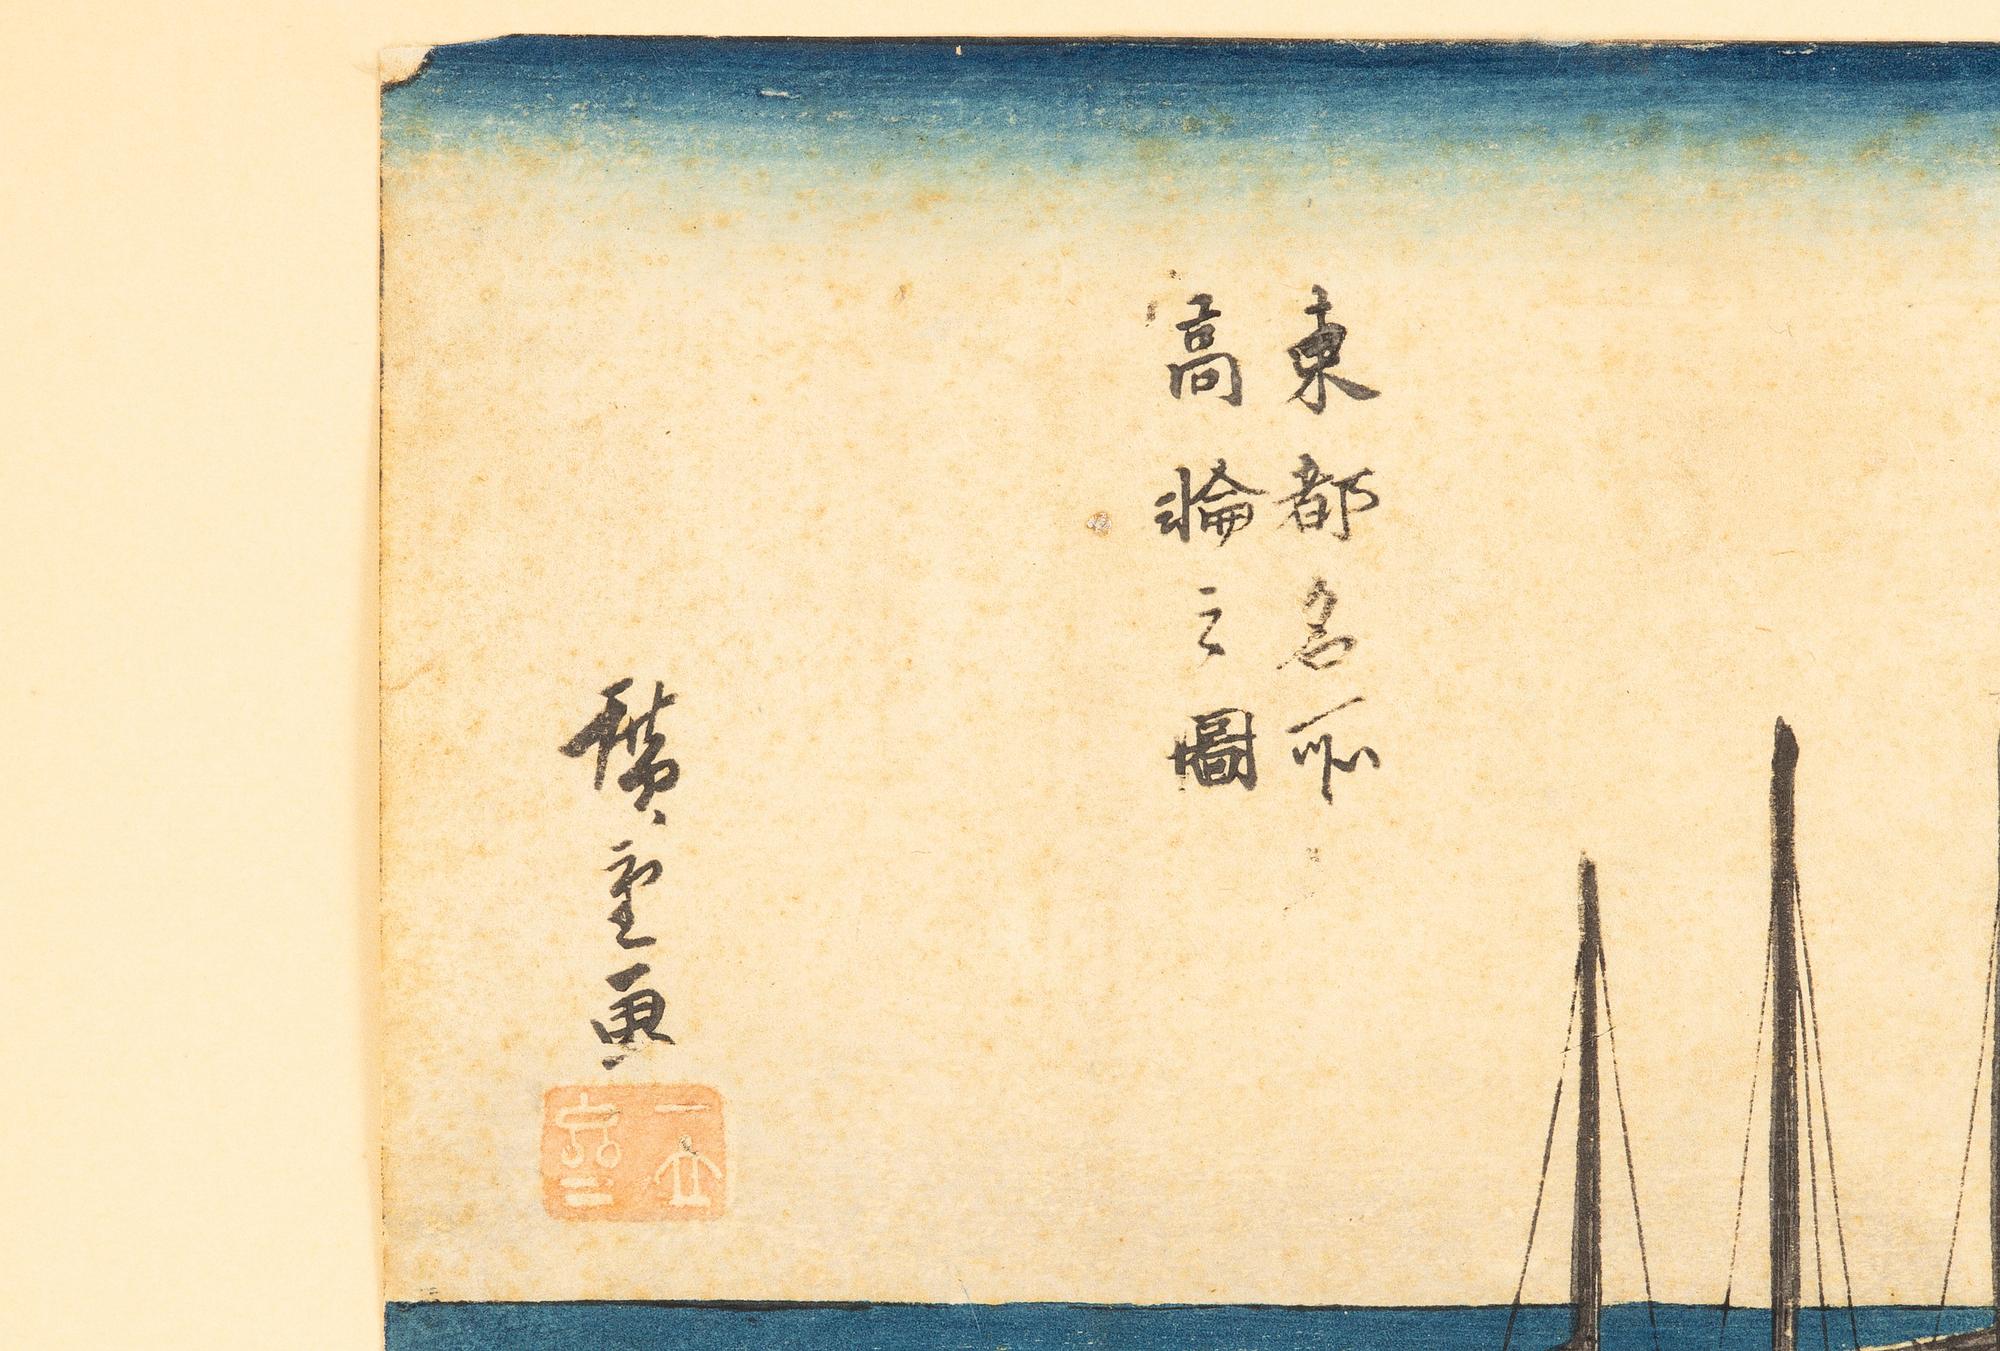 東都名所
高輪之圖
廣重画
一立
斎